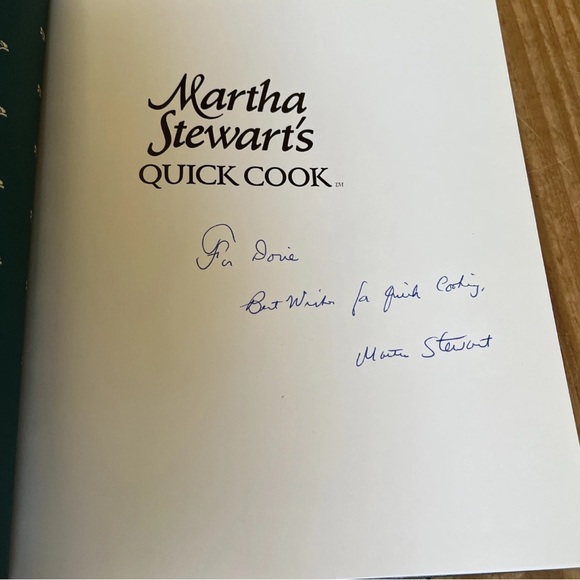 Martha
Stewart's
QUICK COOK™
For Dorie
Best Wishes for Quick Cooking,
Martha Stewart